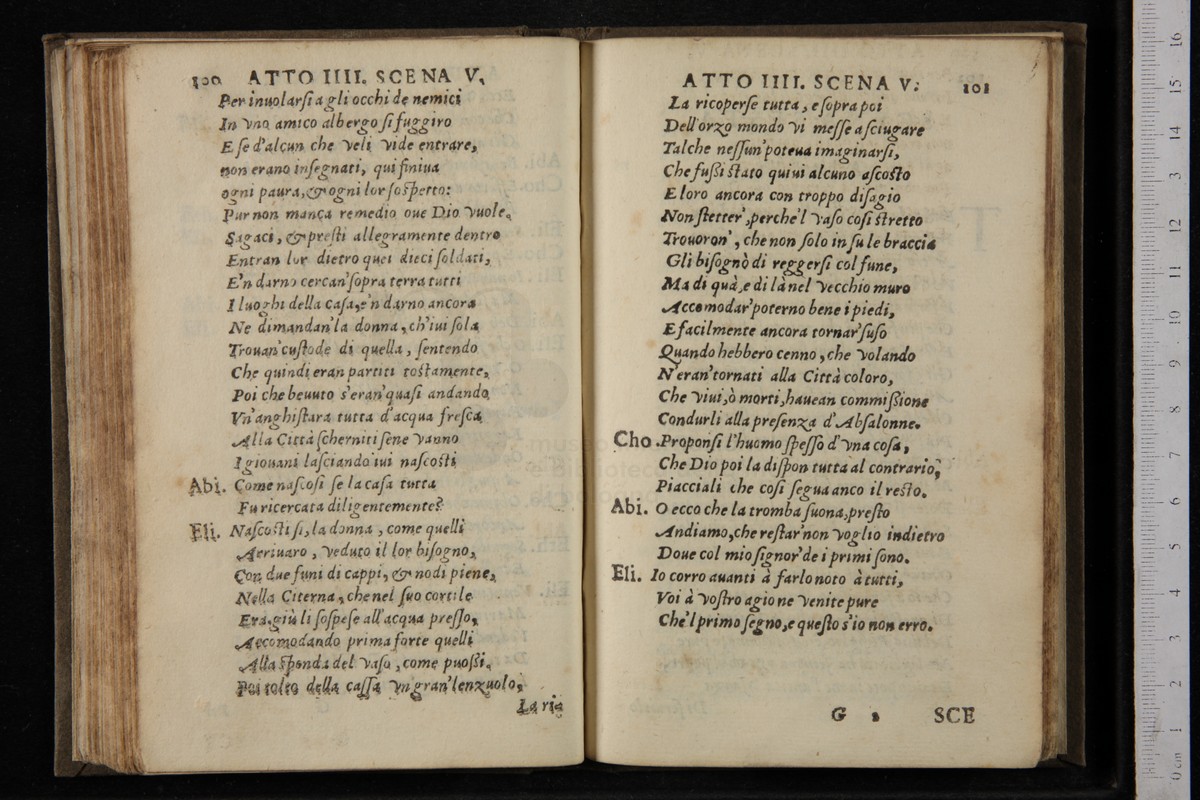 100 ATTO IIII. SCENA V.
Per inuolarſi a gli occhi de nemici
In vno amico albergo ſi fuggiro
E ſe d'alcun che veli vide entrare,
non erano inſegnati, qui finiua
ogni paura, & ogni lor ſoſpetto:
Pur non manca remedio oue Dio vuole.
Sagaci, & preſti allegramente dentro
Entran lor dietro quei dieci ſoldati,
E'n darno cercan' ſopra terra tutti
I luoghi della caſa, e'n darno ancora
Ne dimandan' la donna, ch'iui ſola
Trouan' cuſtode di quella, ſentendo
Che quindi eran partiti toſtamente,
Poi che beuuto s'eran' quaſi andando
Vn' anghiſtara tutta d'acqua freſca
Alla Città ſcherniti ſene vanno
I giouani laſciando iui naſcoſti
Abi. Come naſcoſi ſe la caſa tutta
Fu ricercata diligentemente?
Eli. Naſcoſti ſi, la donna, come quelli
Aeriuaro, veduto il lor biſogno,
Con due funi di cappi, & nodi piene,
Nella Citerna, che nel ſuo cortile
Era, giù li ſoſpeſe all' acqua preſſo,
Accomodando prima forte quelli
Alla ſponda del vaſo, come puoßi.
Poi tolto della caſſa vn gran' lenzuolo,
La ric
ATTO IIII. SCENA V: 101
La ricoperſe tutta, e ſopra poi
Dell' orzo mondo vi meſſe a ſciugare
Talche neſſun' poteua imaginarſi,
Che fußi ſtato quiui alcuno aſcoſto
E loro ancora con troppo diſagio
Non ſtetter', perche'l vaſo coſi ſtretto
Trouoron', che non ſolo in ſu le braccia
Gli biſognò di reggerſi col fune,
Ma di quà, e di là nel vecchio muro
Accomodar' poterno bene i piedi,
E facilmente ancora tornar' ſuſo
Quando hebbero cenno, che volando
N'eran' tornati alla Città coloro,
Che viui, ò morti, hauean commißione
Condurli alla preſenza d'Abſalonne.
Cho. Proponſi l'huomo ſpeſſo d'vna coſa,
Che Dio poi la diſpon tutta al contrario,
Piacciali che coſi ſegua anco il reſto.
Abi. O ecco che la tromba ſuona, preſto
Andiamo, che reſtar' non voglio indietro
Doue col mio ſignor' de i primi ſono.
Eli. Io corro auanti à farlo noto à tutti,
Voi à voſtro agio ne venite pure
Che'l primo ſegno, e queſto s'io non erro.
G 3 SCE